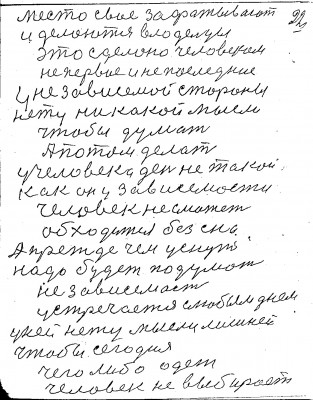 место свое задратывают 22
и делоются владельци
это сделоно человеком
не первые и не последние
у не зависемой стороны
нету ни какой мысли
чтобы думат
А потом делат
у человека ден не такой
как он у зависемости
человек не сможет
обходится без сна
А прежде чем уснут
надо будет подумат
не зависемаст
устречается с любым днем
у ней нету мысли лишней
чтобы сегодня
чего либо одет
человек не выбирает